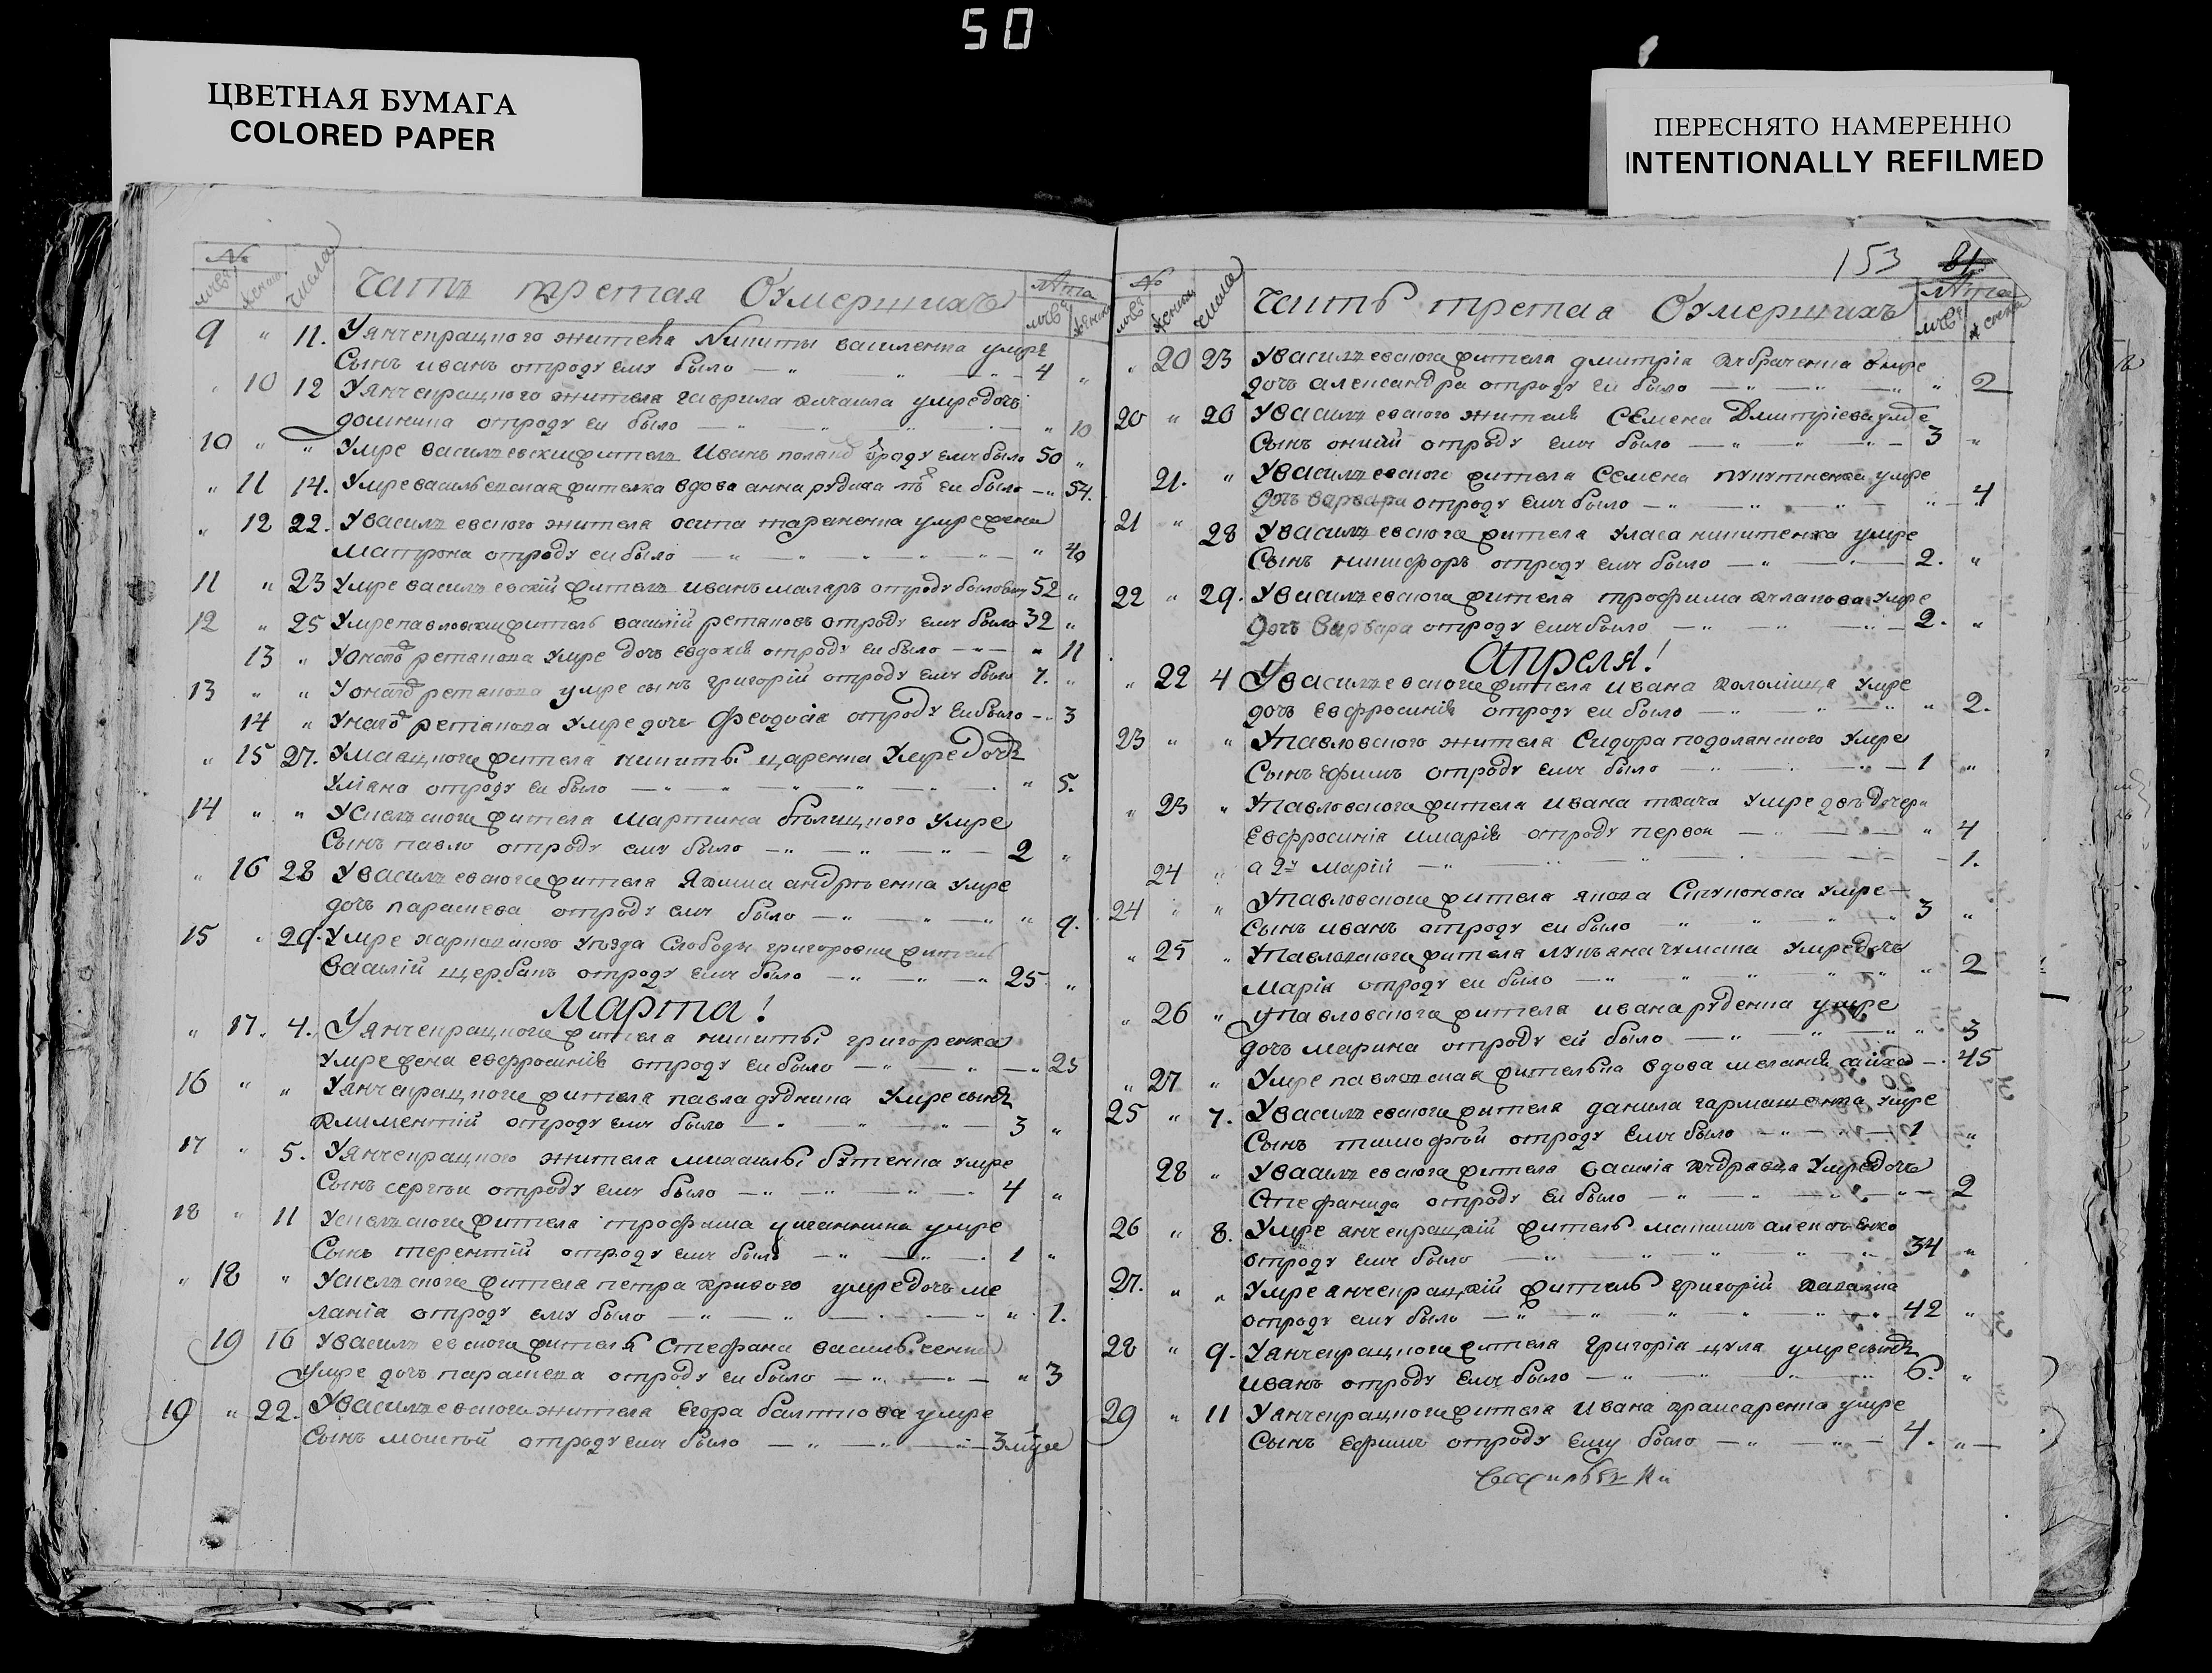 50
ЦВЕТНАЯ БУМАГА
COLORED PAPER
ПЕРЕСНЯТО НАМЕРЕННО
INTENTIONALLY REFILMED
№ числа Часть третая Оумершихъ лѣта
9 " 11. У янчекрацкого жителя Никиты василенка умре
Сынъ иванъ отроду ему было — " " — 4 "
" 10 12 У янчекрацкого жителя гаврила умре дочь
домникия отроду ей было — " — " 10
10 " " Умре васильевский житель Иванъ отроду ему было 50 "
" 11 14. Умре васильевская жителка вдова анна рудиая ей было — " 54.
" 12 22. У васильевского жителя осипа тараненка умре жена
Матрона отроду ей было — " — " — " 40
11 " 23 Умре васильевскій житель иванъ маляръ отроду было ему 52 "
12 " 25 Умре павловский житель василій репановъ отроду ему было 32 "
13 " У оногожъ репанова умре дочь евдокія отроду ей было — " — " 11
13 " " У оногожъ репанова умре сынъ григорій отроду ему было 7. "
14 " У ногожъ репанова умре дочь Феодосія отроду ей было — " 3
" 15 27. У маяцкого жителя никиты царенка Умре дочь
Уляна отроду ей было — " — " — " 5.
14 " " У скельского жителя мартина бѣлицкого Умре
Сынъ павло отроду ему было — " — " — 2 "
" 16 28 У васильевского жителя Якима андрѣенка умре
дочь параскева отроду ему было — " — " — " " 9.
15 " 29. Умре харковского уѣзда Слободы григоровки житель
Василій щербакъ отроду ему было — " — " — " 25 "
Марта!
" 17. 4. У янчекрацкого жителя никиты григоренка
умре жена евфросинія отроду ей было — " — " — " 25
16 " " У янчекрацкого жителя павла дудкина Умре сынъ
климентій отроду ему было — " " — " — 3 "
17 " 5. У янчекрацкого жителя михаилы бутенка умре
Сынъ сергѣй отроду ему было — " — " — " — 4 "
18 " 11 У скельского жителя трофима умре
Сынъ терентій отроду ему было — " — " 1 "
" 18 " У скельского жителя петра кривого умре дочь ме
ланія отроду ему было — " — " — " " 1.
19 16 У васильевского жителя Стефана васильченка
Умре дочь параскева отроду ей было — " — " — " 3
19 " 22. У васильевского жителя Егора балтнова умре
Сынъ моисѣй отроду ему было — " — " — " 3
153 81
№ числа Часть третая Оумершихъ лѣта
" 20 23 У васильевского жителя дмитрія умре
дочь александра отроду ей было — " — " — " " 2
20 " 20 У васильевского жителя Семена Дмитріева умре
Сынъ отроду ему было — " " — 3 "
21. " У васильевского жителя Семена умре
дочь варвара отроду ему было — " — " — " 4
21 " 28 У васильевского жителя Уласа никитенка умре
Сынъ никифоръ отроду ему было — " — " — 2. "
22 " 29. У васильевского жителя трофима Умре
дочь варвара отроду ему было — " — " — 2. "
Апреля!
" 22 4 У васильевского жителя ивана коломійца умре
дочь евфросинія отроду ей было — " — " " 2.
23 " " У павловского жителя Сидора подолянского Умре
Сынъ ефимъ отроду ему было — " — " — 1 "
" 23 " У павловского жителя ивана ткача Умре двѣ дочери
Евфросинія и марія отроду первои — " — " 4
24 " а 2й Марій — " — " — 1.
24 " " У павловского жителя якова Умре
Сынъ иванъ отроду ей было " " " 3 "
" 25 " У павловского жителя лукъяна чумака умре дочь
Марія отроду ей было — " " " " 2
" 26 " У павловского жителя ивана руденка умре
дочь марина отроду ей было — " — " " 3
" 27 " Умре павловская жителька вдова меланія — " 45
25 " 7. У васильевского жителя данила гармашенка умре
Сынъ тимофѣй отроду ему было — " — " — 1 "
28 " У васильевского жителя василія кудравца Умре дочь
Стефанида отроду ей было — " — " — 2
26 " 8. Умре янчекрацкій житель алексѣенко
отроду ему было — " — " " " 34 "
27. " " Умре янчекрацкій житель григорій
отроду ему было — " — " " " 42 "
28 " 9. У янчекрацкого жителя григорія цула умре сынъ
иванъ отроду ему было — " — " " 6. "
29 " 11 У янчекрацкого жителя ивана умре
Сынъ ефимъ отроду ему было — " — " — 4. "